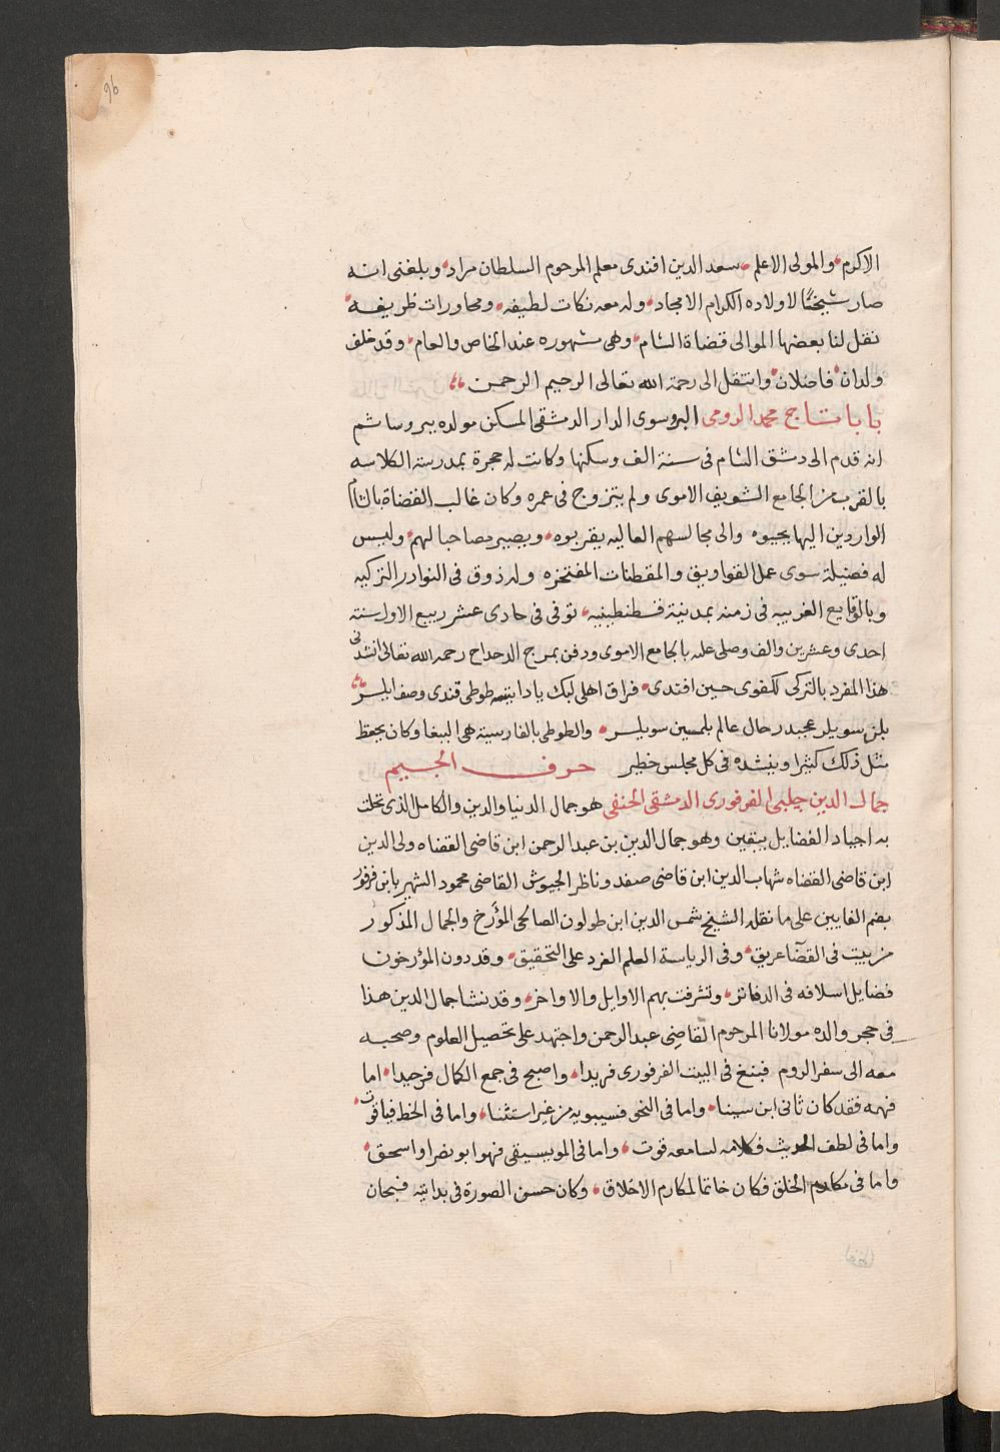 96
الاكرم والمولى الاعلم سعد الدين افندى معلم المرحوم السلطان مراد وبلغنى انه
صار شيختًا لاولاده الكرام الامجاد وله معه نكات لطيفه ومحاورات ظريفه
نقل لنا بعضها الموالى قضاة الشام وهى مشهوره عند الخاص والعام وقد خلف
ولدان فاضلان وانتقل الى رحمة الله تعالى الرحيم الرحمن
بابا تاج محمد الرومى البروسوى الدار الدمشقى المسكن مولده ببروسا ثم
انه قدم الى دمشق الشام فى سنة الف وسكنها وكانت له حجرة بمدرسة الكلاسه
بالقرب من الجامع الشريف الاموى ولم يتزوج فى عمره وكان غالب القضاة بالشام
الواردين اليها يحبوه والى مجالسهم العاليه يقربوه ويصير مصاحبا لهم وليس
له فضيلة سوى عمل القواويق والمقطنات المفتخره وله ذوق فى النوادر التركيه
وبالوقايع الغريبه فى زمنه بمدينة قسطنطينيه توفى فى حادى عشر ربيع الاول سنة
احدى وعشرين والف وصلى عليه بالجامع الاموى ودفن بمرج الدحداح رحمه الله تعالى انشدنى
هذا المفرد بالتركى لكفوى حسين افندى فراق اهلى لبك ياد طوطى قندى وصف ايلر
بلز سويلر عجبدر حال عالم بلمسين سويلر والطوطى بالفارسية هى الببغا وكان يحفظ
مثل ذلك كثيرا وينشده فى كل مجلس خطير حرف الجيم
جمال الدين چلبى الفرفورى الدمشقى الحنفى هو جمال الدنيا والدين والكامل الذى تحلت
به اجياد الفضايل بيقين وهو جمال الدين بن عبد الرحمن ابن قاضى القضاه ولى الدين
ابن قاضى القضاه شهاب الدين ابن قاضى صفد وناظر الجيوش القاضى محمود الشهير بابن فرفور
بضم الفايين على ما نقله الشيخ شمس الدين ابن طولون الصالحى المؤرخ والجمال المذكور
من بيت فى القضآ عريق وفى الرياسة العلم الفرد على التحقيق وقد دون المؤرخون
فضايل اسلافه فى الدفاتر وتشرفت بهم الاوايل والاواخر وقد نشا جمال الدين هذا
فى حجر والده مولانا المرحوم القاضى عبد الرحمن واجتهد على تحصيل العلوم وصحبه
معه الى سفر الروم فنبغ فى البيت الفرفورى فريدا واصبح فى جمع الكمال فرحيدا اما
فهمه فقد كان ثانى ابن سينا واما فى النحو فسيبويه من غير استثنا واما فى الخط فياقوت
واما فى لطف الحديث فكلامه لسامعه قوت واما فى الموسيقى فهو ابو نصر او اسحق
واما فى مكارم الخلق فكان خاتما لمكارم الاخلاق وكان حسن الصورة فى بدايته فبحان